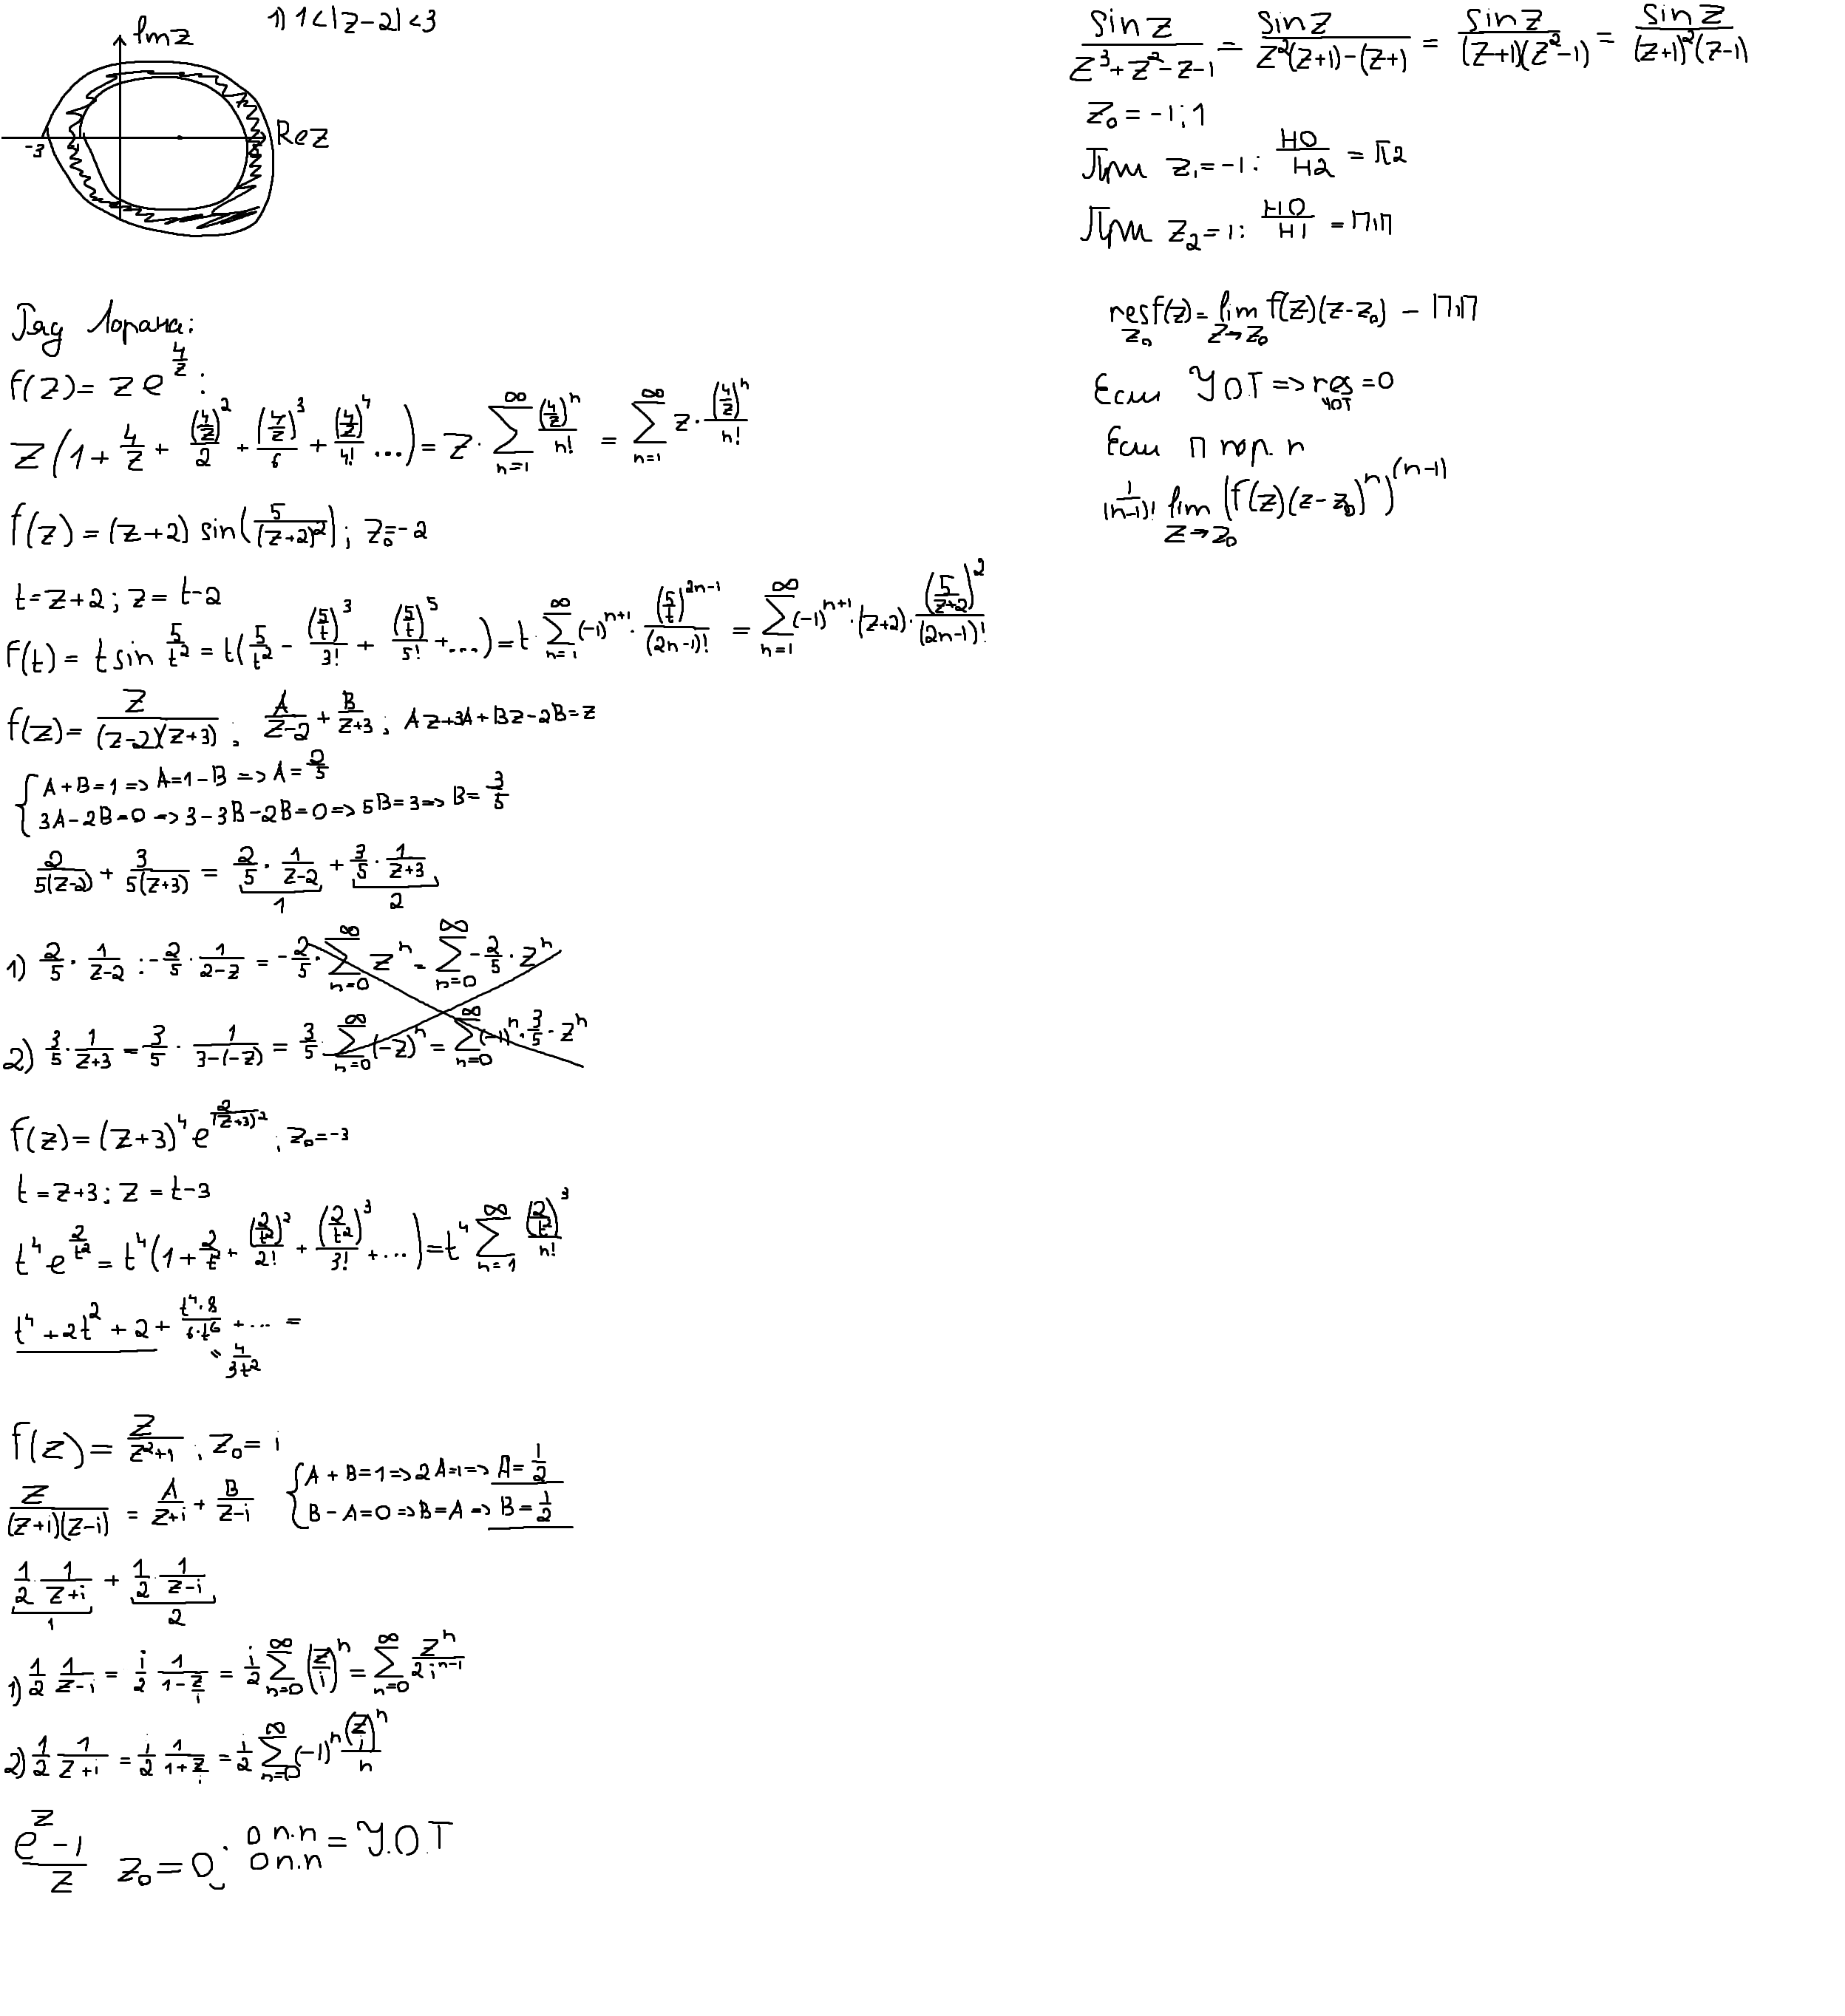 1) 1<|z-2|<3
Im z
Re z
-3
Ряд Лорана:
f(z)= z e^(4/z) :
z(1 + 4/z + (4/z)^2/2 + (4/z)^3/6 + (4/z)^4/4! ...) = z · ∑_{n=1}^∞ (4/z)^n/n! = ∑_{n=1}^∞ z · (4/z)^n/n!
f(z) = (z+2) sin(5/(z+2)^2); z_0=-2
t=z+2; z= t-2
f(t) = t sin 5/t^2 = t(5/t^2 - (5/t)^3/3! + (5/t)^5/5! + ...) = t · ∑_{n=1}^∞ (-1)^{n+1} · (5/t)^{2n-1}/(2n-1)! = ∑_{n=1}^∞ (-1)^{n+1} · (z+2) · (5/(z+2))^2/(2n-1)!
f(z) = z/((z-2)(z+3)) ; A/(z-2) + B/(z+3) ; Az+3A+Bz-2B=z
{ A+B=1 => A=1-B => A= 2/5
3A-2B=0 => 3-3B-2B=0 => 5B=3 => B= 3/5
2/(5(z-2)) + 3/(5(z+3)) = 2/5 · 1/(z-2) + 3/5 · 1/(z+3)
1 2
1) 2/5 · 1/(z-2) : -2/5 · 1/(2-z) = -2/5 · ∑_{n=0}^∞ z^n = ∑_{n=0}^∞ -2/5 · z^n
2) 3/5 · 1/(z+3) = 3/5 · 1/(3-(-z)) = 3/5 · ∑_{n=0}^∞ (-z)^n = ∑_{n=0}^∞ (-1)^n · 3/5 · z^n
f(z) = (z+3)^4 e^(2/(z+3)^2) ; z_0=-3
t=z+3; z=t-3
t^4 e^(2/t^2) = t^4(1 + 2/t^2 + (2/t^2)^2/2! + (2/t^2)^3/3! + ...) = t^4 ∑_{n=1}^∞ (2/t^2)^3/n!
t^4 + 2t^2 + 2 + t^4·8/(6·t^6) + ... =
= 4/(3t^2)
f(z) = z/(z^2+1) ; z_0= i
z/((z+i)(z-i)) = A/(z+i) + B/(z-i) { A+B=1 => 2A=1 => A= 1/2
B-A=0 => B=A => B= 1/2
1/2 · 1/(z+i) + 1/2 · 1/(z-i)
1 2
1) 1/2 1/(z-i) = i/2 1/(1-z/i) = i/2 ∑_{n=0}^∞ (z/i)^n = ∑_{n=0}^∞ z^n/(2i^{n-1})
2) 1/2 1/(z+i) = i/2 1/(1+z/i) = i/2 ∑_{n=0}^∞ (-1)^n (z/i)^n/n
(e^z-1)/z z_0=0; 0 п.п/0 п.п = У.О.Т
sin z/(z^3+z^2-z-1) = sin z/(z^2(z+1)-(z+1)) = sin z/((z+1)(z^2-1)) = sin z/((z+1)^2(z-1))
z_0 = -1; 1
При z_1=-1: Н0/Н2 = П2
При z_2=1: Н0/Н1 = ПП
res_{z_0} f(z) = lim_{z→z_0} f(z)(z-z_0) - ПП
Если УОТ => res_{УОТ} =0
Если П пор. n
1/(n-1)! lim_{z→z_0} (f(z)(z-z_0)^n)^{(n-1)}